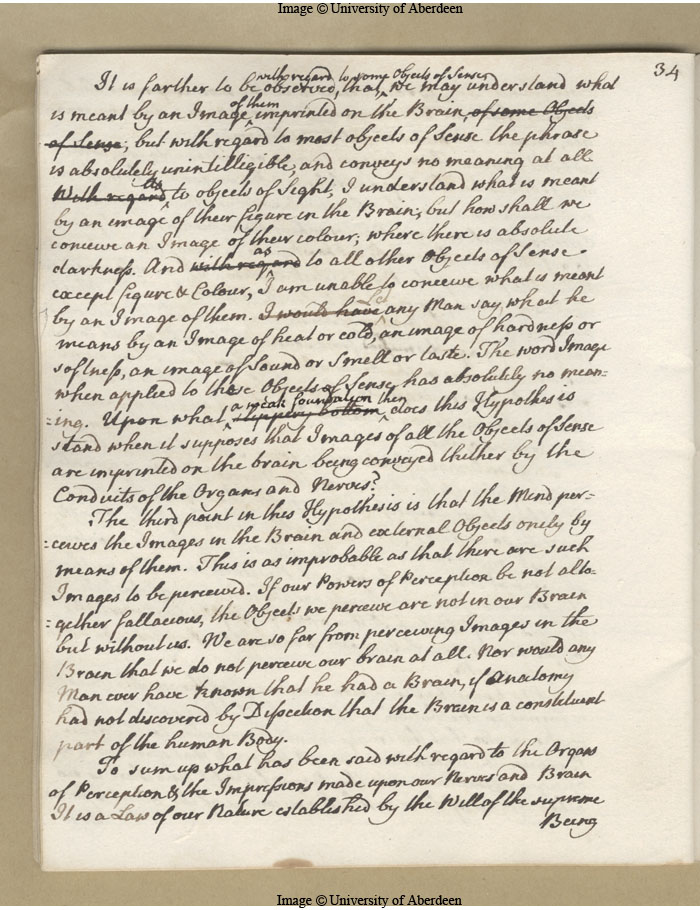 Image © University of Aberdeen
34
with regard to some Objects of Sense
It is farther to be observed, that, we may understand what
of them
is meant by an Image imprinted on the Brain of some Objects
of Sense; but with regard to most objects of Sense the phrase
is absolutely unintilligible, and conveys no meaning at all
As
With regard to objects of Sight, I understand what is meant
by an image of their figure in the Brain; but how shall we
conceive an Image of their colour; where there is absolute
as
darkness. And with regard to all other Objects of Sense
except figure & Colour, I am unable to conceive what is meant
by an Image of them. I would have any Man say what he
means by an Image of heat or cold, an image of hardness or
softness, an image of Sound or Smell or taste. The word Image
when applied to these Objects of Sense, has absolutely no mean-
a weak foundation then
=ing. Upon what slippery bottom, does this Hypothesis
stand when it supposes that Images of all the Objects of Sense
are imprinted on the brain being conveyed thither by the
Conduits of the Organs and Nerves?
The third point in this Hypothesis is that the Mind per=
=ceives the Images in the Brain and external Objects only by
means of them. This is as improbable as that there are such
Images to be perceived. If our Powers of Perception be not alto-
=gether fallacious, the Objects we perceive are not in our Brain
but without us. We are so far from perceiving Images in the
Brain that we do not perceive our brain at all. Nor would any
Man ever have known that he had a Brain, if Anatomy
had not discovered by Dissection that the Brain is a constituent
part of the human Body.
To sum up what has been said with regard to the Organs
of Perception & the Impressions made upon our Nerves and Brain
It is a Law of our Nature established by the Will of the supreme
Being
Image © University of Aberdeen